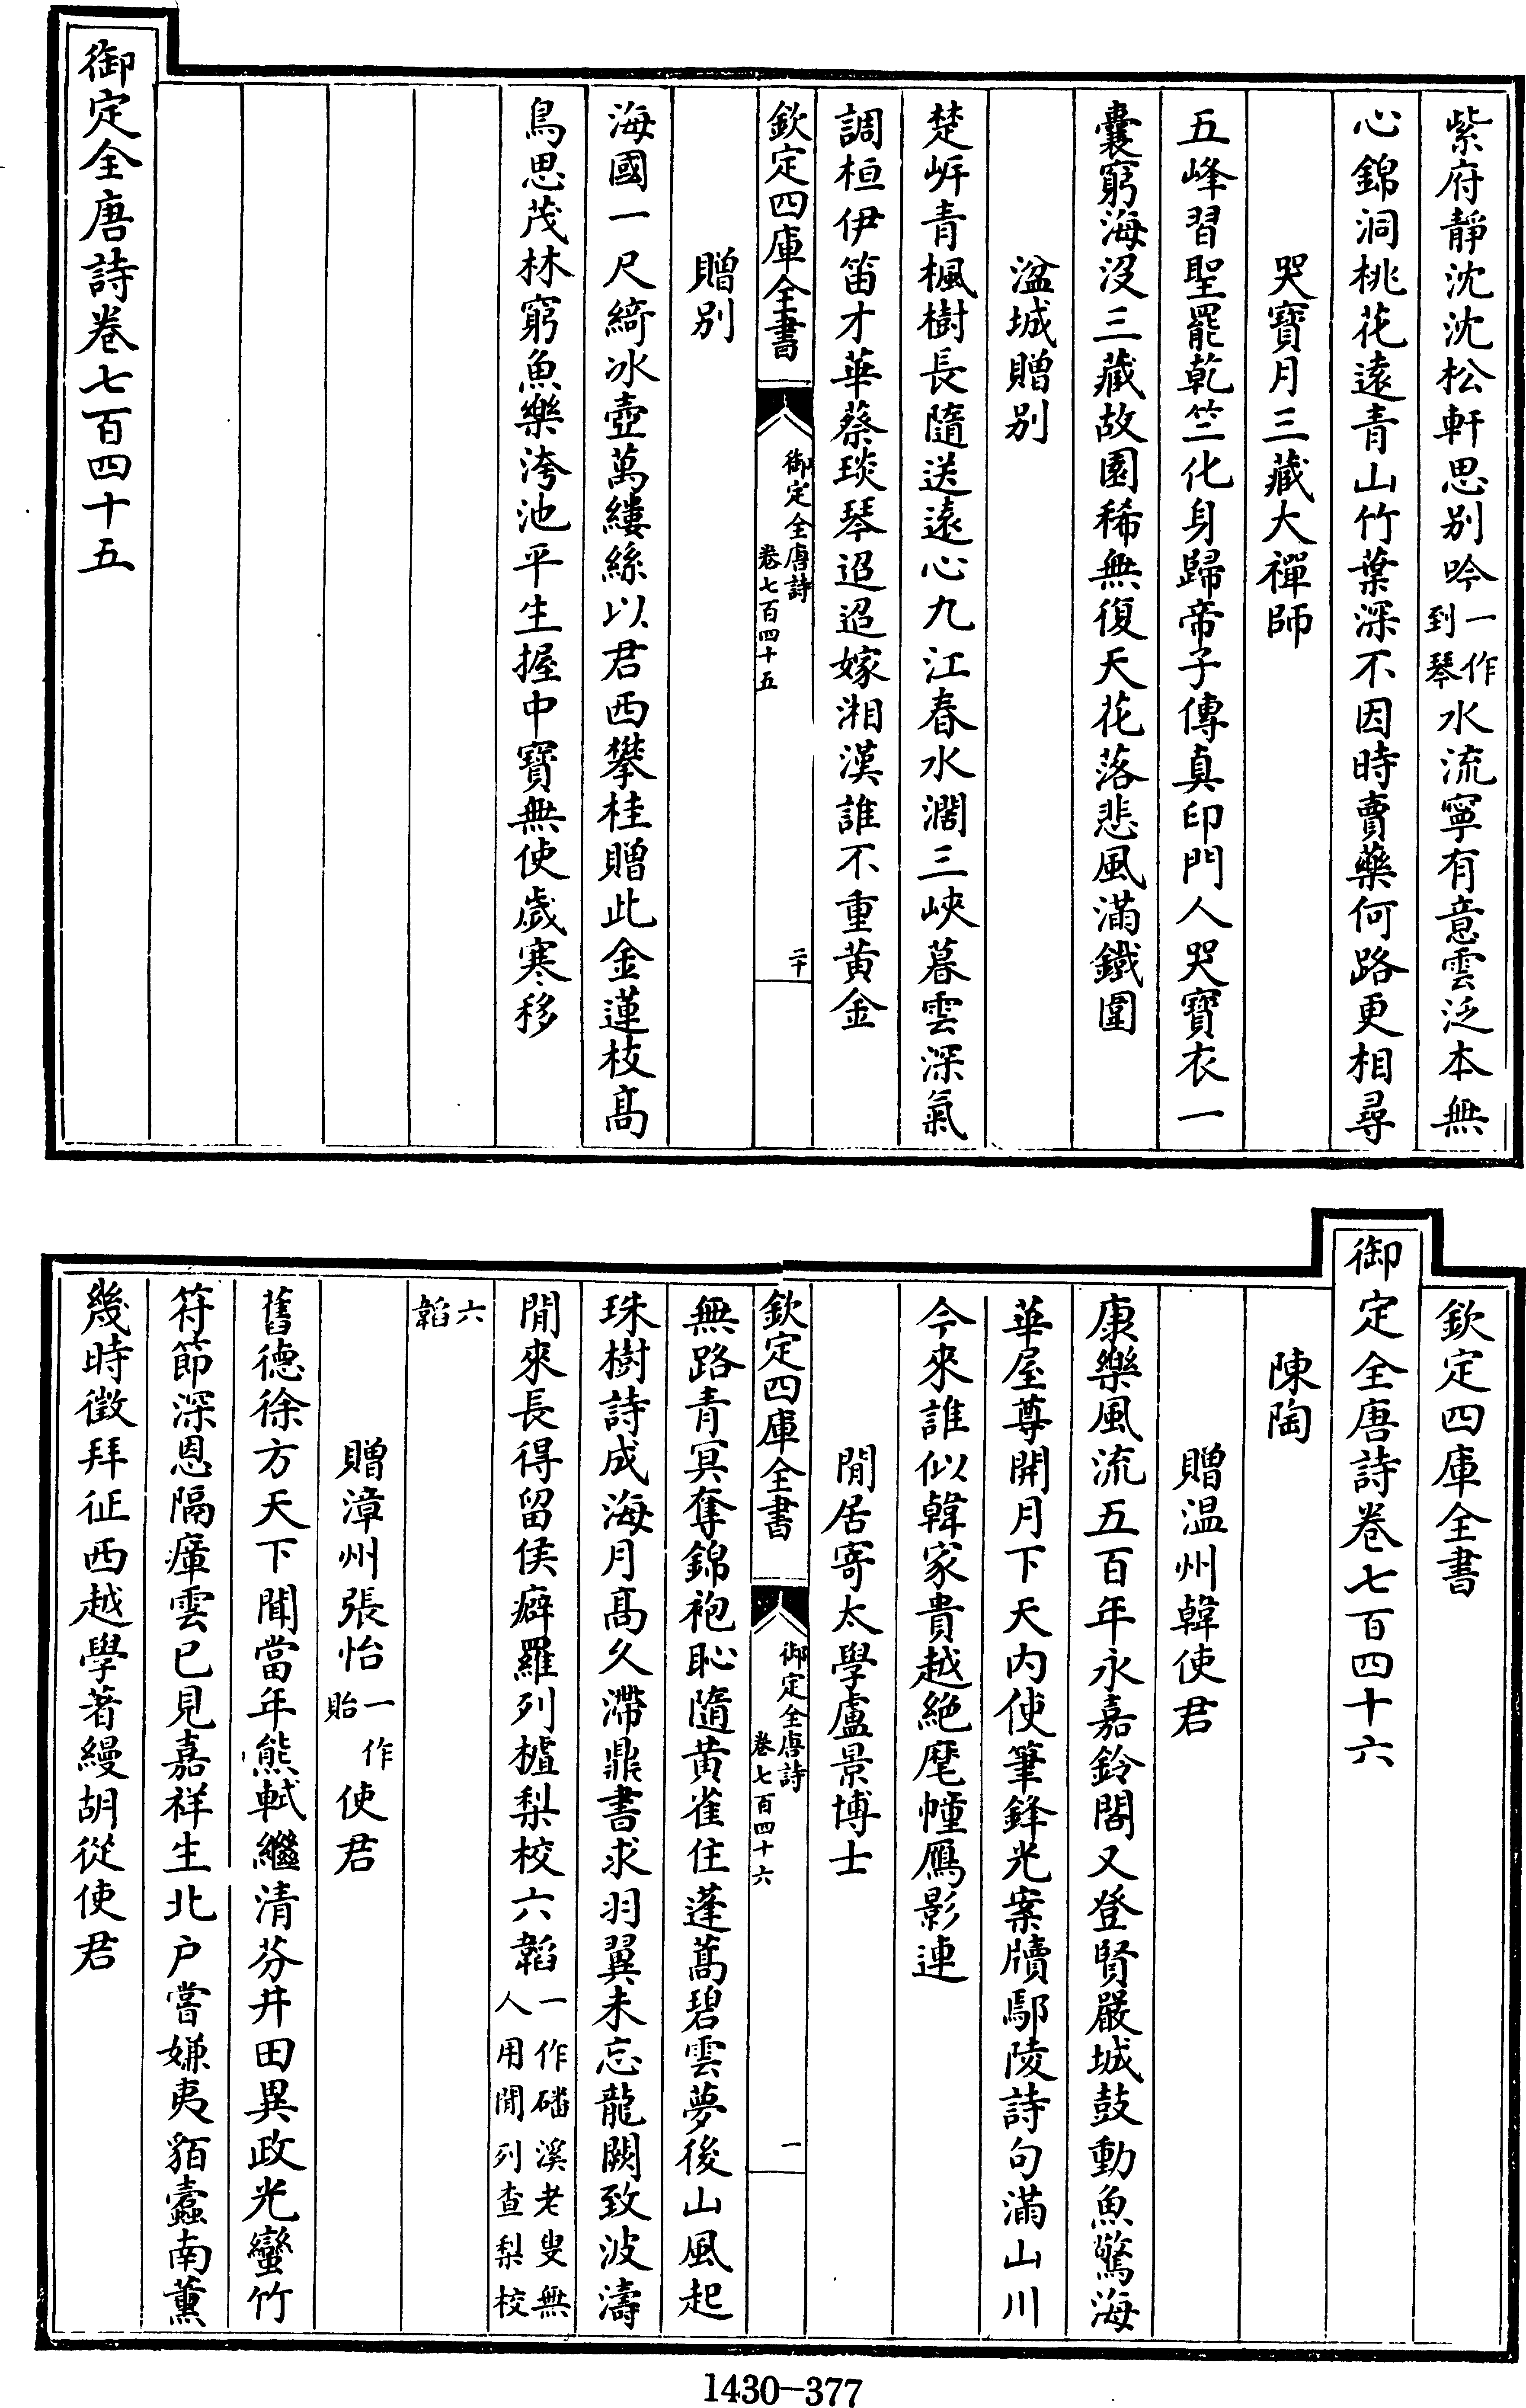 紫府靜沈沈松軒思别吟一作到琴水流寧有意雲泛本無
心錦洞桃花遠青山竹葉深不因時賣藥何路更相尋
哭寶月三藏大禪師
五峰習聖罷乾竺化身歸帝子傳真印門人哭寶衣一
囊窮海沒三藏故園稀無復天花落悲風滿鐵圍
湓城贈别
楚岍青楓樹長隨送遠心九江春水濶三峽暮雲深氣
調桓伊笛才華蔡琰琴迢迢嫁湘漢誰不重黄金
欽定四庫全書
御定全唐詩
卷七百四十五
二十
贈别
海國一尺綺冰壺萬縷絲以君西攀桂贈此金蓮枝髙
鳥思茂林窮魚樂洿池平生握中寶無使歲寒移
御定全唐詩卷七百四十五
欽定四庫全書
御定全唐詩卷七百四十六
陳陶
贈温州韓使君
康樂風流五百年永嘉鈴閣又登賢嚴城鼓動魚驚海
華屋尊開月下天内使筆鋒光案牘鄢陵詩句滿山川
今來誰似韓家貴越絶麾幢鴈影連
閒居寄太學盧景博士
無路青冥奪錦袍恥隨黄雀住蓬蒿碧雲夢後山風起
欽定四庫全書
御定全唐詩
卷七百四十六
一
珠樹詩成海月髙久滯鼎書求羽翼未忘龍闕致波濤
閒來長得留侯癖羅列樝梨校六韜一作磻溪老叟無人用閒列查梨校
六韜
贈漳州張怡一作貽使君
舊德徐方天下聞當年熊軾繼清芬井田異政光蠻竹
符節深恩隔瘴雲已見嘉祥生北户嘗嫌夷貊蠹南薰
幾時徴拜征西越學著縵胡從使君
1430-377